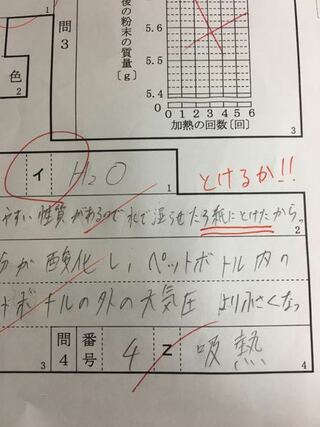 後の粉末の質量〔g〕
5.6
5.5
5.4
0
0 1 2 3 4 5 6
加熱の回数〔回〕
問3
3
色
2
イ H₂O
1
とけるか!!
やすい性質があるので水で湿らせたろ紙にとけたから。
2
が酸化し、ペットボトル内の
ボトルの外の大気圧より小さくなっ
3
問4 番号 4 Z 吸熱
4